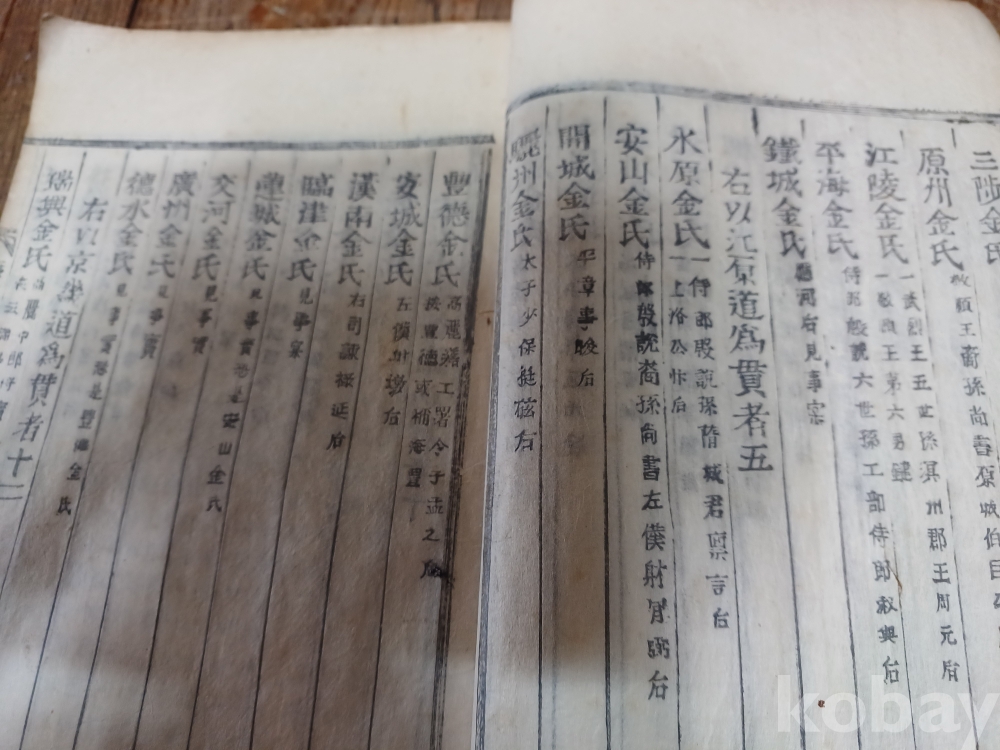 三陟金氏
原州金氏 敬順王裔孫尚書原城伯
江陵金氏 一武烈王五世孫溟州郡王周元后
一敬順王第六男鍵
平海金氏 侍郎殷說六世孫工部侍郎
鐵城金氏 后見事宗
右以江原道爲貫者五
水原金氏 一侍郎殷說孫隋城君禀言后
一上洛公忻后
安山金氏 侍郎殷說裔孫尙書左僕射
開城金氏 平章事晙后
驪州金氏 太子少保挺磁后
豐德金氏 高麗繕工署令子孟之后
按豐德或補海豐
安城金氏 后
漢南金氏 右司諫祿延后
臨津金氏 見事宗
蓮城金氏 見事實恐是安山金氏
交河金氏 見事實
廣州金氏 見事實
德水金氏 見事實恐是豐德金氏
右以京畿道爲貫者十二
瑞興金氏
kobay